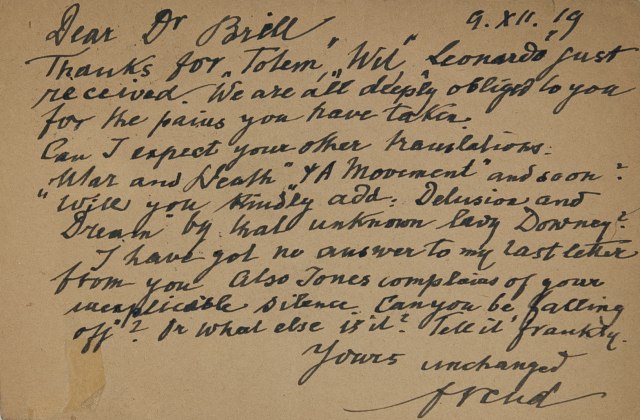 9. XII. 19
Dear Dr Brill
Thanks for Totem", "Wit", Leonardo" just
received. We are all deeply obliged to you
for the pains you have taken.
Can I expect your other translations:
"War and Death" & "A Movement" and soon?
Will you kindly add: Delusion and
Dream" by that unknown lady Downey?
I have got no answer to my last letter
from you. Also Jones complains of your
inexplicable silence. Can you be "falling
off"? Or what else is it? Tell it frankly.
Yours unchanged
Freud